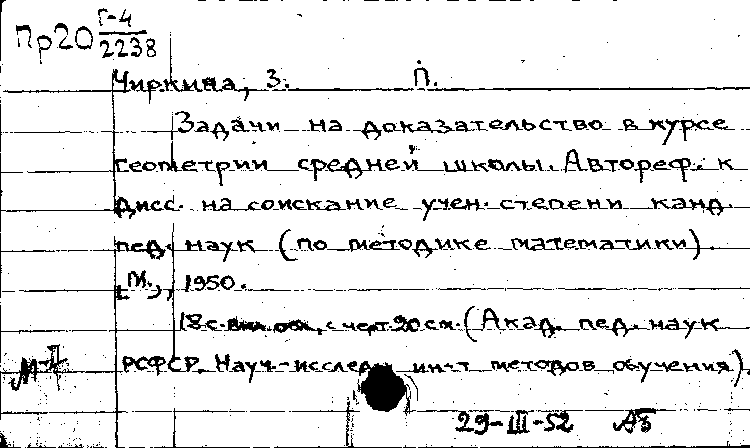 Пр20 Г-4/2238
Чиркина, З. П.
Задачи на доказательство в курсе
геометрии средней школы. Автореф. к
дисс. на соискание учен. степени канд.
пед. наук (по методике математики).
[М.], 1950.
18 с. вкл. обл., с черт. 20 см. (Акад. пед. наук
РСФСР. Науч.-исслед. ин-т методов обучения).
М-II
29-III-52 АЗ